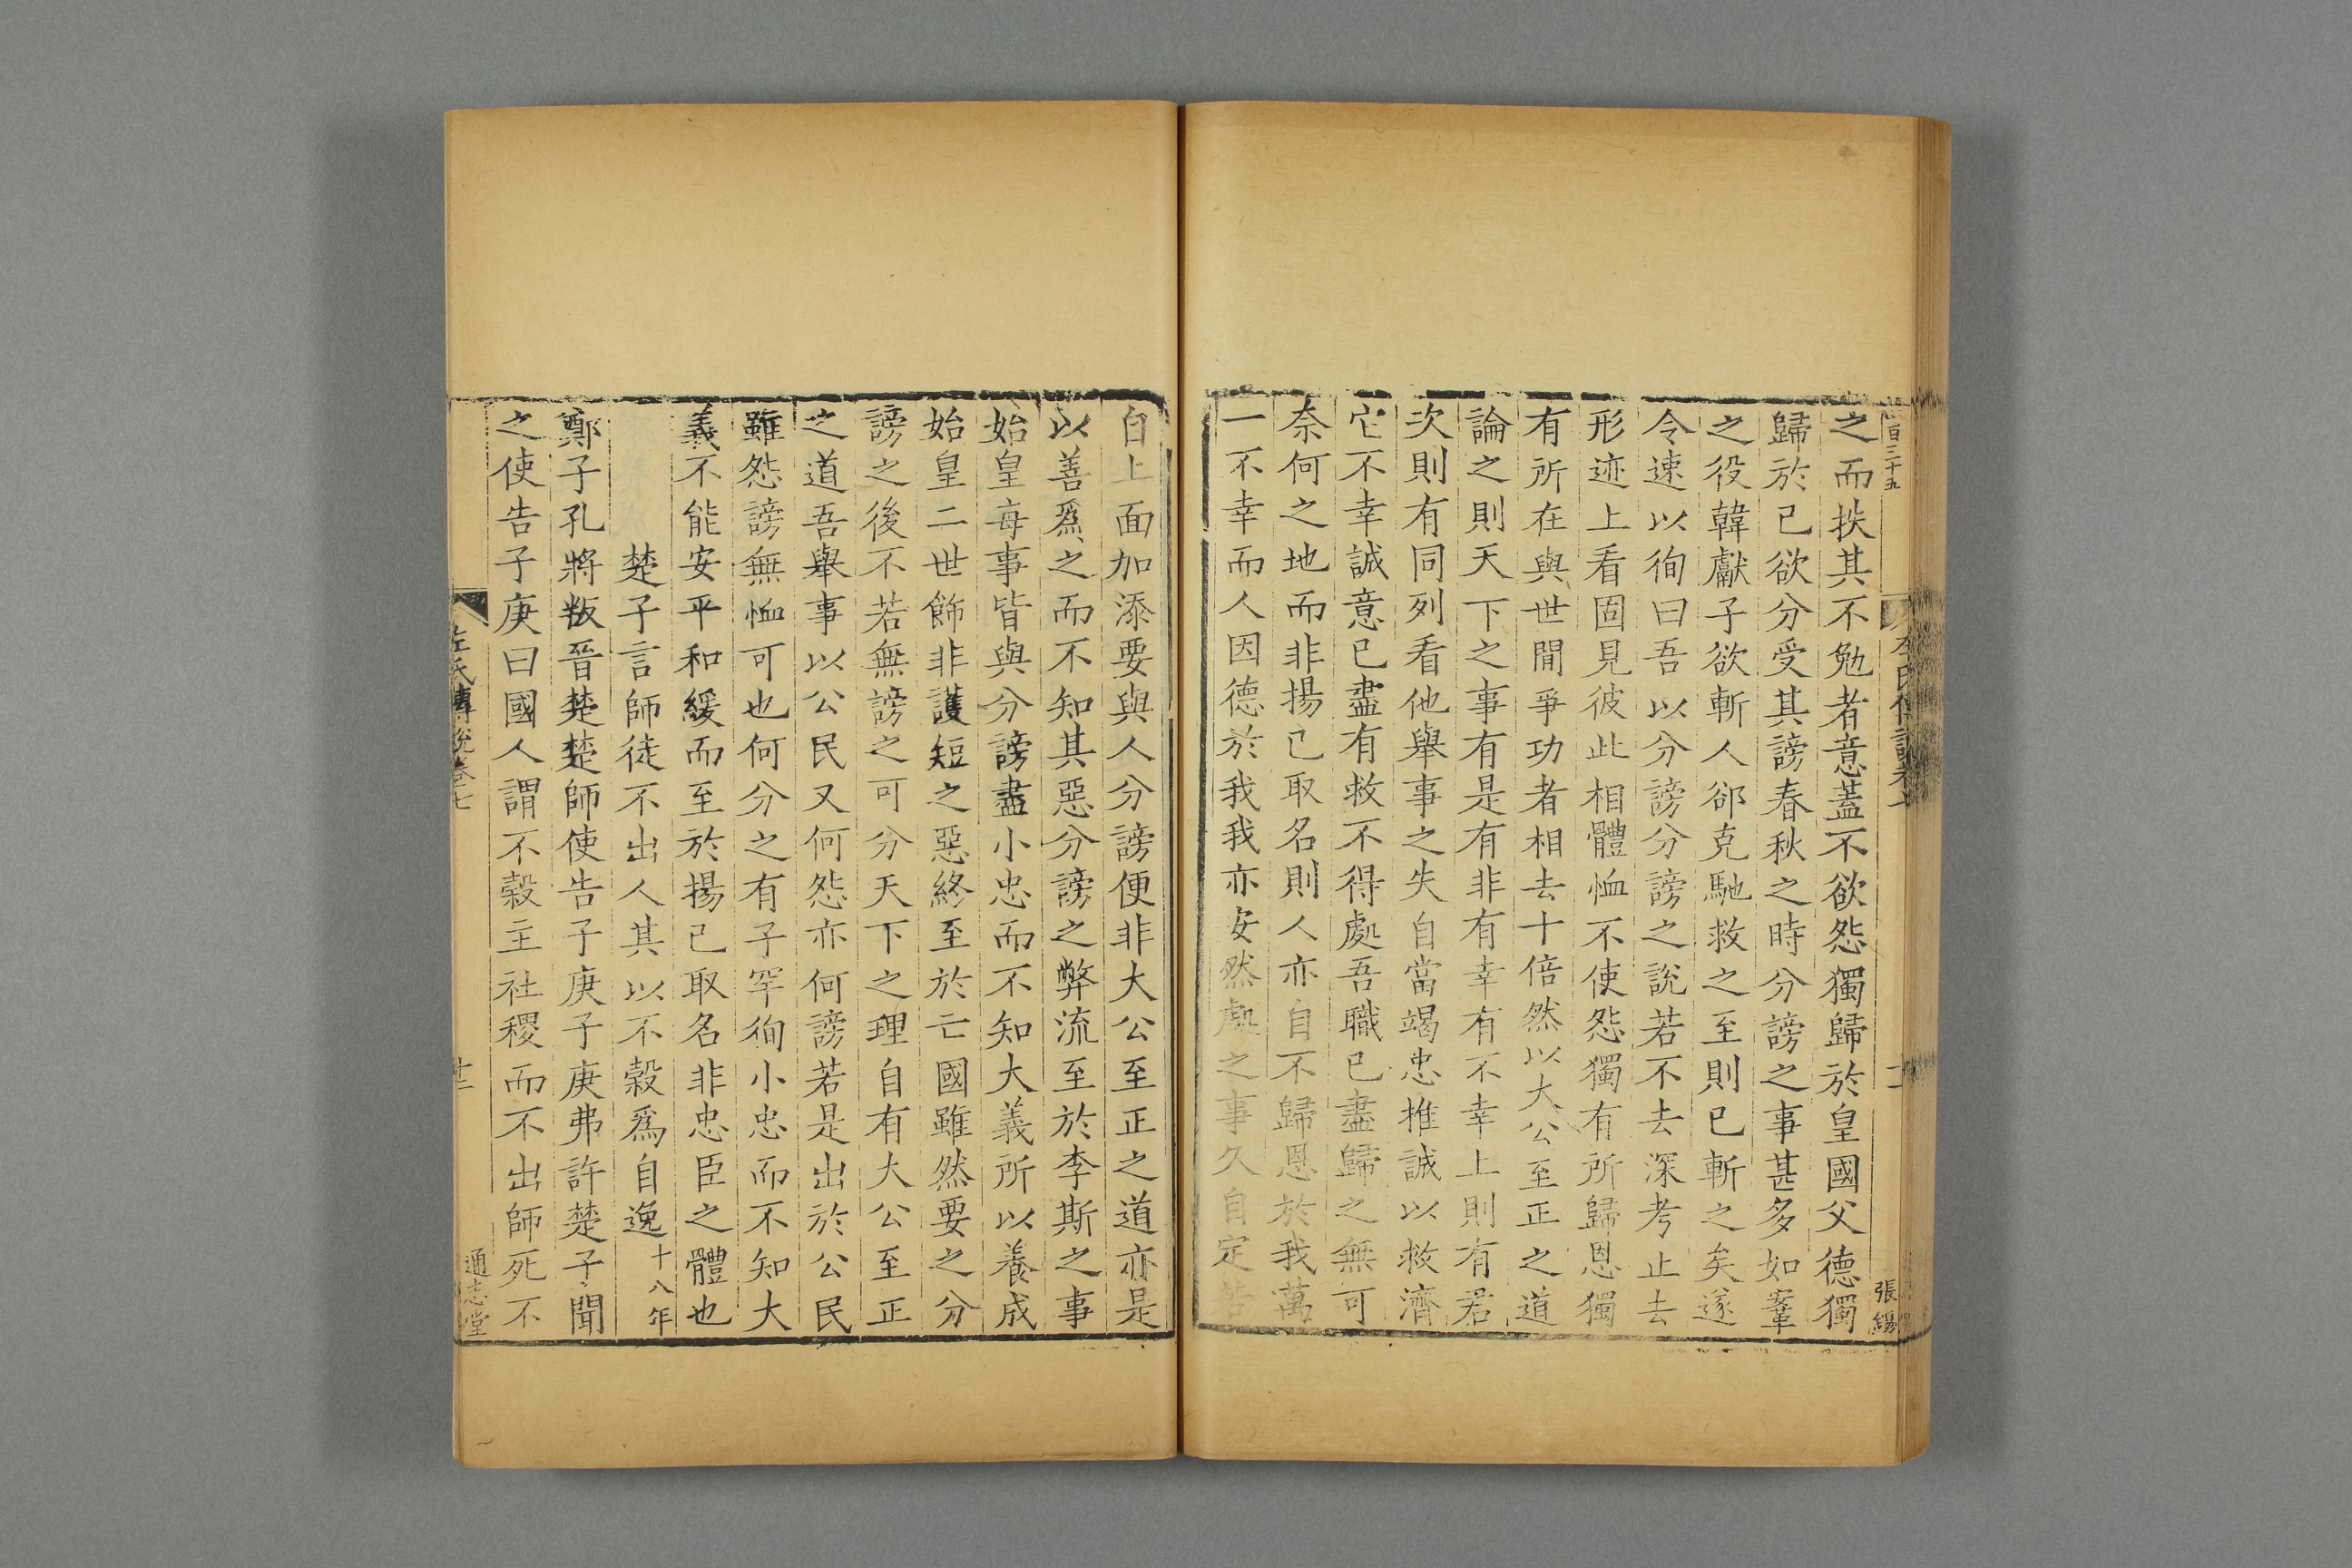 百三十五
張錫
之而抶其不勉者意蓋不欲怨獨歸於皇國父德獨
歸於已欲分受其謗春秋之時分謗之事甚多如鞌
之役韓獻子欲斬人郤克馳救之至則已斬之矣遂
令速以徇曰吾以分謗分謗之說若不去深考止去
形迹上看固見彼此相體恤不使怨獨有所歸恩獨
有所在與世間爭功者相去十倍然以大公至正之道
論之則天下之事有是有非有幸有不幸上則有君
次則有同列看他舉事之失自當竭忠推誠以救濟
它不幸誠意已盡有救不得處吾職已盡歸之無可
奈何之地而非揚己取名則人亦自不歸恩於我萬
一不幸而人因德於我我亦安然處之事久自定若
自上面加添要與人分謗便非大公至正之道亦是
以善爲之而不知其惡分謗之弊流至於李斯之事
始皇每事皆與分謗盡小忠而不知大義所以養成
始皇二世飾非護短之惡終至於亡國雖然要之分
謗之後不若無謗之可分天下之理自有大公至正
之道吾舉事以公民又何怨亦何謗若是出於公民
雖怨謗無恤可也何分之有子罕徇小忠而不知大
義不能安平和緩而至於揚已取名非忠臣之體也
楚子言師徒不出人其以不穀爲自逸十八年
鄭子孔將叛晉楚楚師使告子庚子庚弗許楚子聞
之使告子庚曰國人謂不穀主社稷而不出師死不
左氏傳說卷七
十二
通志堂